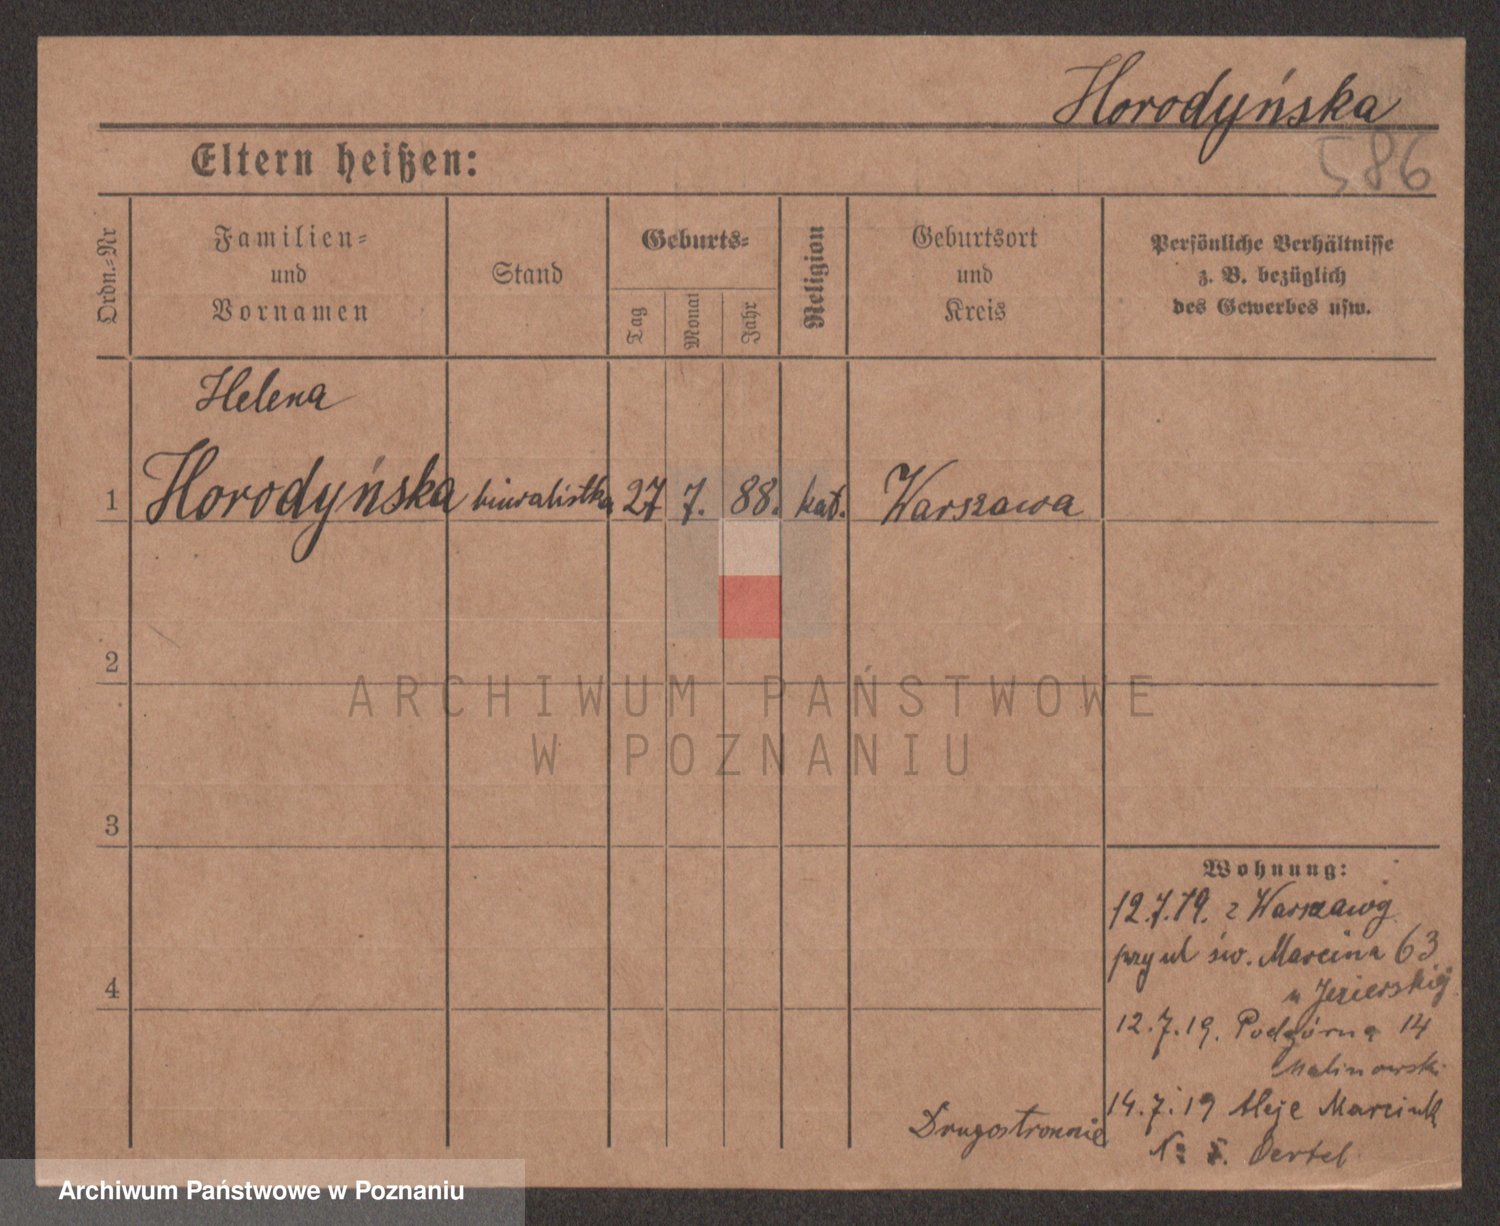 Horodyńska
586
Eltern heißen:
Ordn.-Nr
Familien-
und
Vornamen
Stand
Geburts-
Tag
Monat
Jahr
Religion
Geburtsort
und
Kreis
Persönliche Verhältnisse
z. B. bezüglich
des Gewerbes usw.
Helena
1 Horodyńska biuralistka 27 7. 88. kat. Warszawa
2
ARCHIWUM PAŃSTWOWE
W POZNANIU
3
Wohnung:
12.7.19. z Warszawy
przy ul św. Marcina 63
4
u Jezierskiej
12.7.19. Podgórna 14
Malinowski
14.7.19 Aleje Marcink
Drugostronnie
Oertel
Archiwum Państwowe w Poznaniu